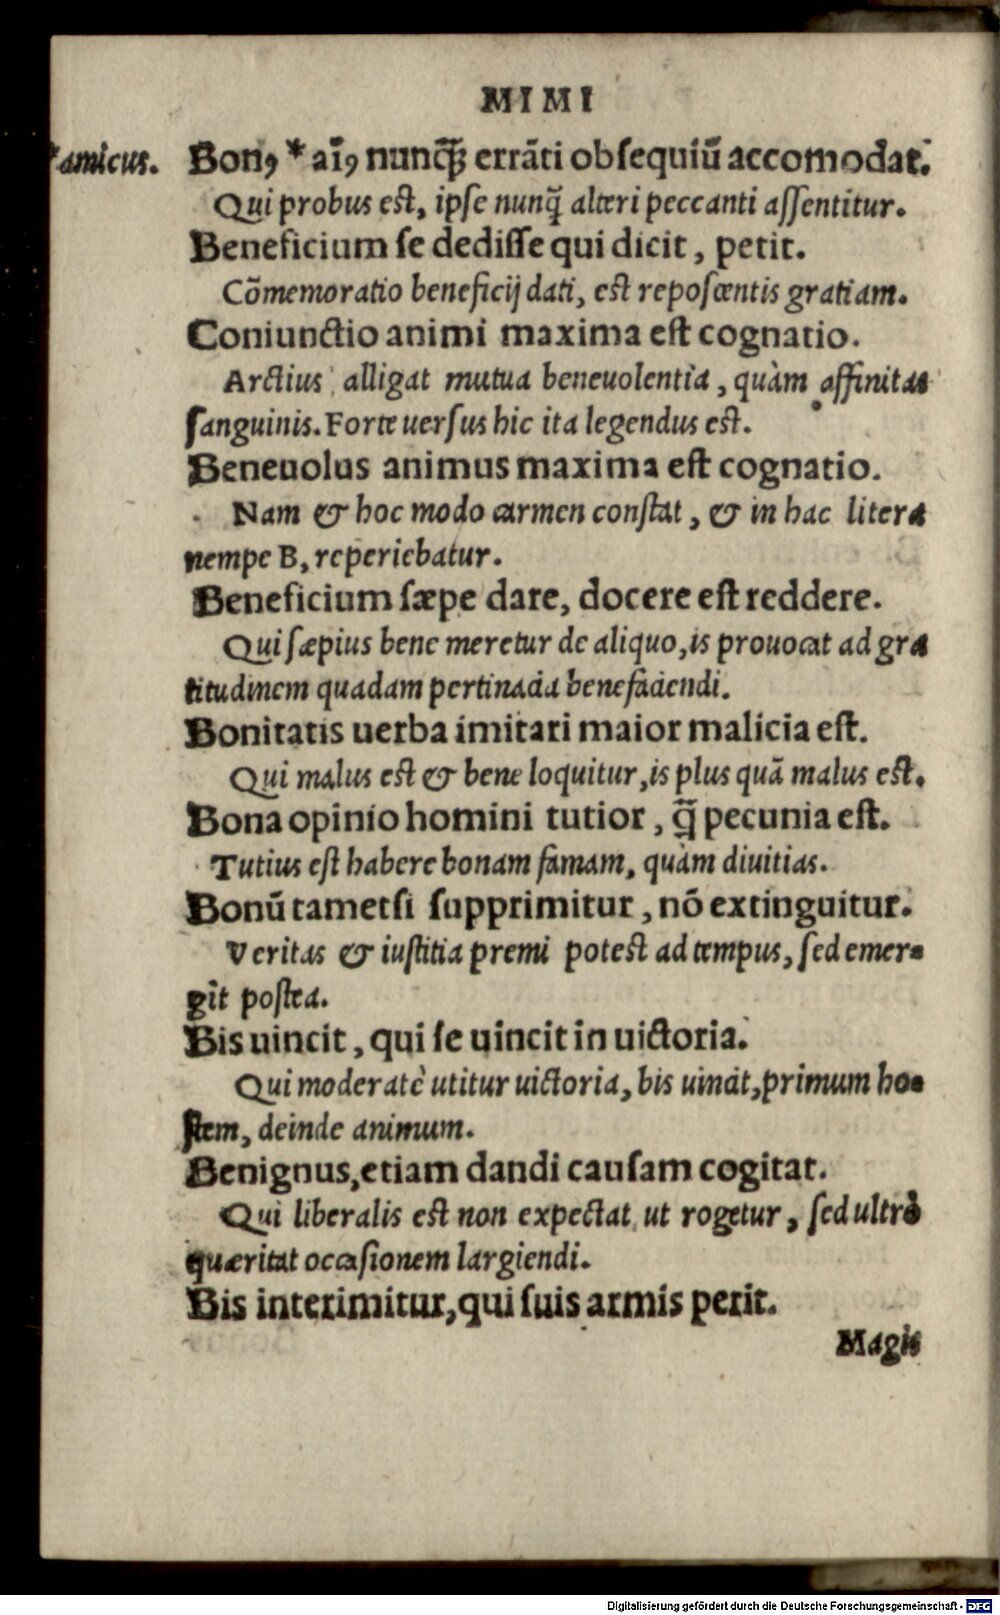 MIMI
*amicus.
Bonꝰ * aĩꝰ nunq̃ʒ errãti obſequiũ accomodat.
Qui probus est, ipſe nunq̃ alteri peccanti aſſentitur.
Beneficium ſe dediſſe qui dicit, petit.
Cõmemoratio beneficij dati, est repoſcentis gratiam.
Coniunctio animi maxima eſt cognatio.
Arctius alligat mutua beneuolentia, quàm affinitas
ſanguinis. Forte uerſus hic ita legendus est.
Beneuolus animus maxima eſt cognatio.
Nam & hoc modo carmen conſtat, & in hac litera
nempe B, reperiebatur.
Beneficium ſæpe dare, docere eſt reddere.
Qui ſæpius bene meretur de aliquo, is prouocat ad gra
titudinem quadam pertinacia benefaciendi.
Bonitatis uerba imitari maior malicia eſt.
Qui malus est & bene loquitur, is plus quã malus est.
Bona opinio homini tutior, q̃ pecunia eſt.
Tutius eſt habere bonam famam, quàm diuitias.
Bonũ tametſi ſupprimitur, nõ extinguitur.
Veritas & iuſtitia premi potest ad tempus, ſed emer⸗
git poſtea.
Bis uincit, qui ſe uincit in uictoria.
Qui moderatè utitur uictoria, bis uincit, primum ho⸗
ſtem, deinde animum.
Benignus, etiam dandi cauſam cogitat.
Qui liberalis est non expectat ut rogetur, ſed ultrò
quæritat occaſionem largiendi.
Bis interimitur, qui ſuis armis perit.
Magis
Digitalisierung gefördert durch die Deutsche Forschungsgemeinschaft - DFG